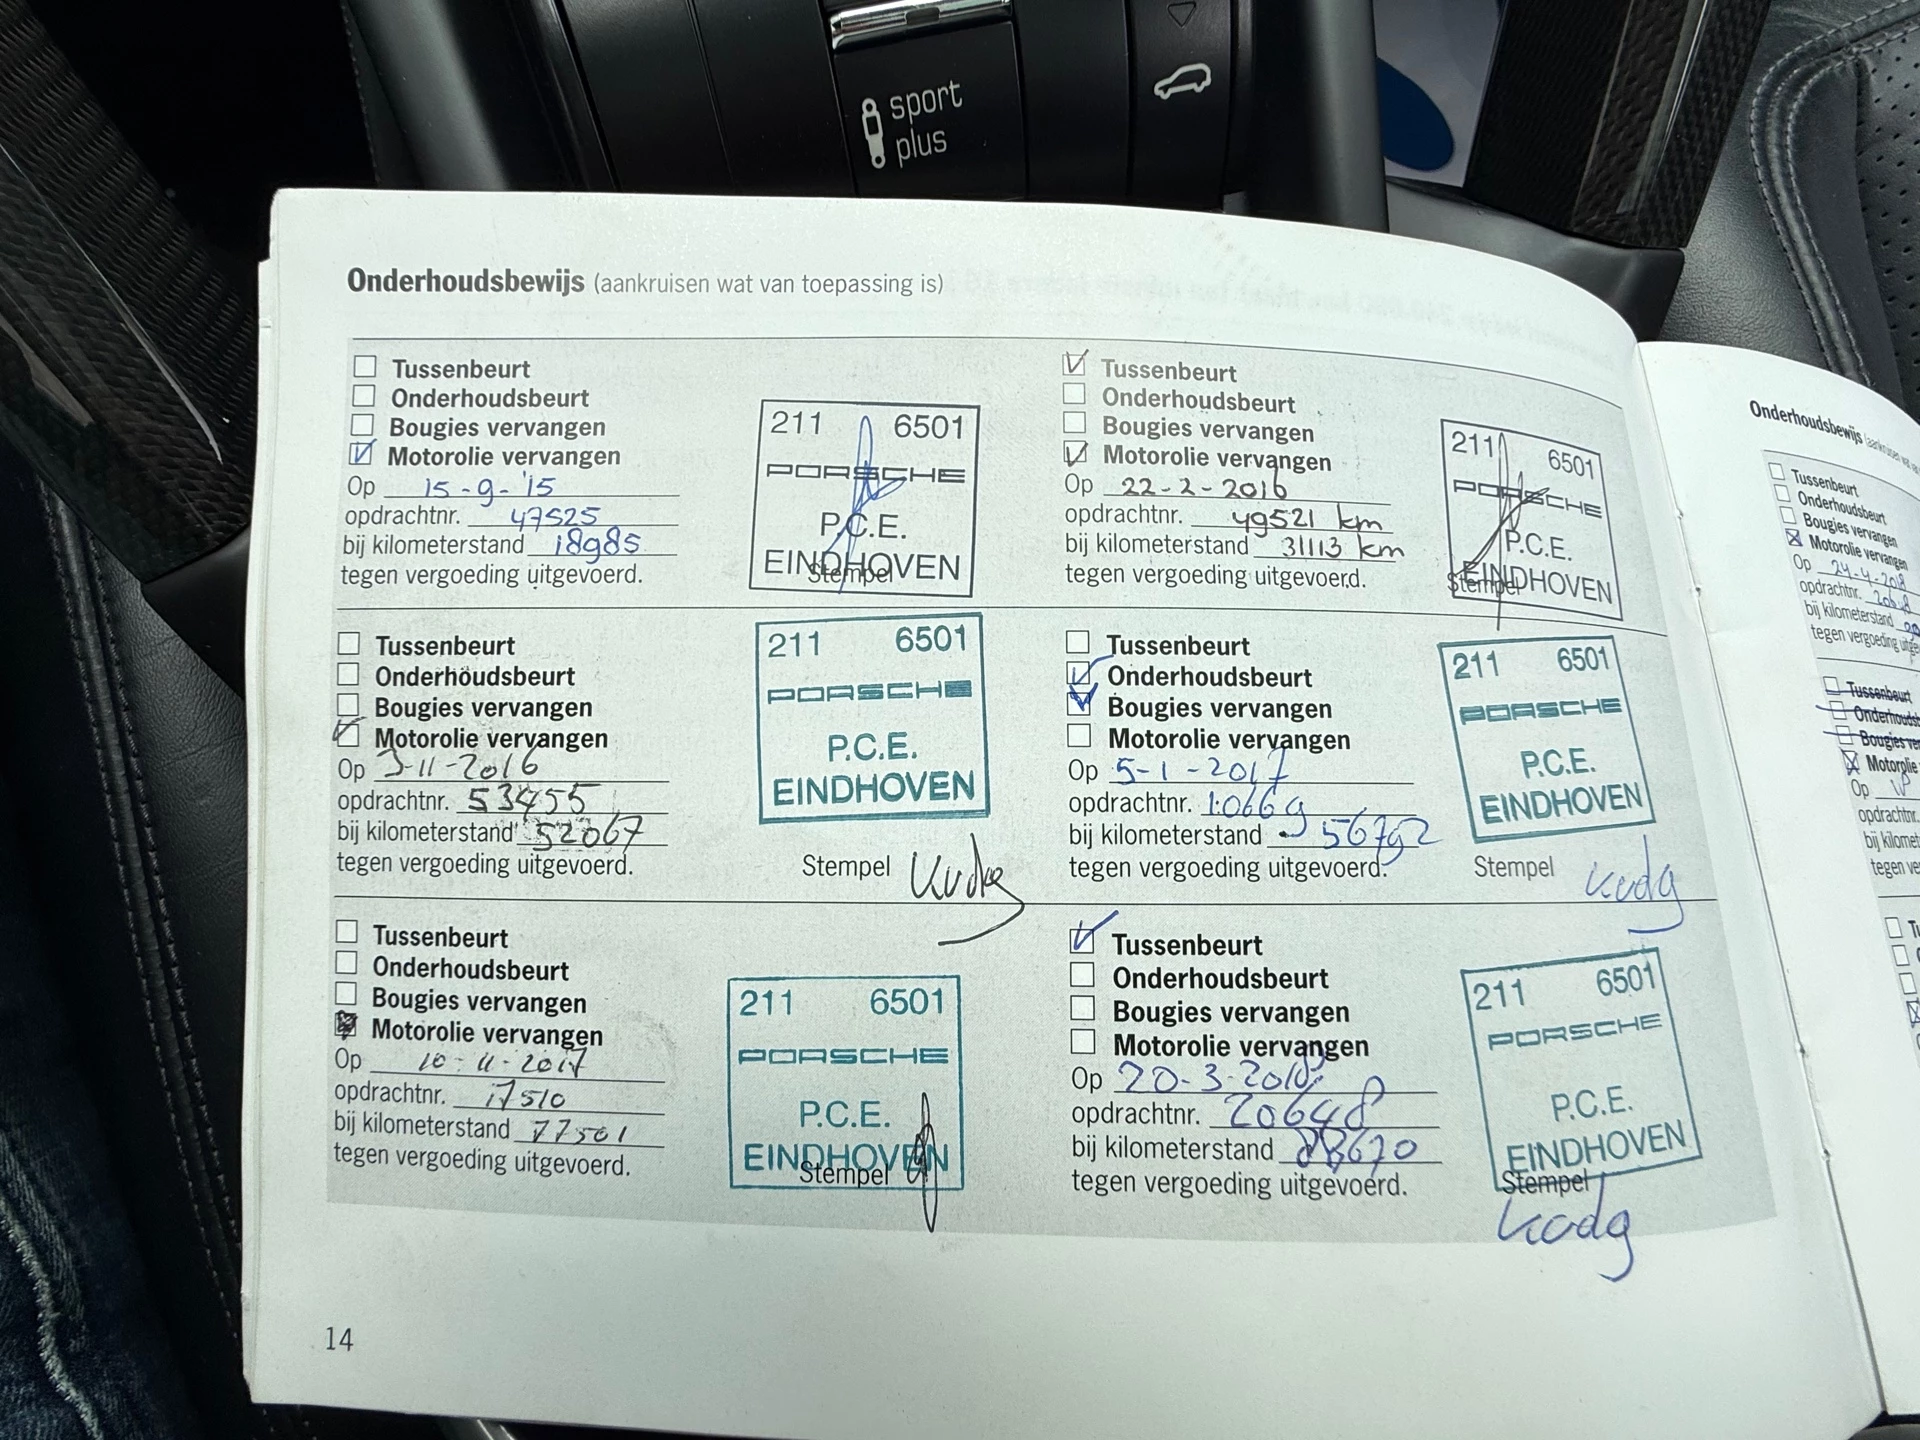 sport
plus
Onderhoudsbewijs (aankruisen wat van toepassing is)
Tussenbeurt
Onderhoudsbeurt
Bougies vervangen
Motorolie vervangen
Op 15-9-'15
opdrachtnr. 47525
bij kilometerstand 18985
tegen vergoeding uitgevoerd.
211 6501
PORSCHE
P.C.E.
EINDHOVEN
Stempel
Tussenbeurt
Onderhoudsbeurt
Bougies vervangen
Motorolie vervangen
Op 22-2-2016
opdrachtnr. 49521 km
bij kilometerstand 31113 km
tegen vergoeding uitgevoerd.
211 6501
PORSCHE
P.C.E.
EINDHOVEN
Stempel
Tussenbeurt
Onderhoudsbeurt
Bougies vervangen
Motorolie vervangen
Op 3-11-2016
opdrachtnr. 53455
bij kilometerstand 52067
tegen vergoeding uitgevoerd.
211 6501
PORSCHE
P.C.E.
EINDHOVEN
Stempel
Tussenbeurt
Onderhoudsbeurt
Bougies vervangen
Motorolie vervangen
Op 5-1-2017
opdrachtnr. 10669
bij kilometerstand 56792
tegen vergoeding uitgevoerd.
211 6501
PORSCHE
P.C.E.
EINDHOVEN
Stempel
Tussenbeurt
Onderhoudsbeurt
Bougies vervangen
Motorolie vervangen
Op 10-11-2017
opdrachtnr. 17510
bij kilometerstand 77501
tegen vergoeding uitgevoerd.
211 6501
PORSCHE
P.C.E.
EINDHOVEN
Stempel
Tussenbeurt
Onderhoudsbeurt
Bougies vervangen
Motorolie vervangen
Op 20-3-2018
opdrachtnr. 20648
bij kilometerstand 88670
tegen vergoeding uitgevoerd.
211 6501
PORSCHE
P.C.E.
EINDHOVEN
Stempel
14
Onderhoudsbewijs
Tussenbeurt
Onderhoudsbeurt
Bougies vervangen
Motorolie vervangen
Op 24-4-2018
opdrachtnr.
bij kilometerstand
tegen vergoeding
Tussenbeurt
Op